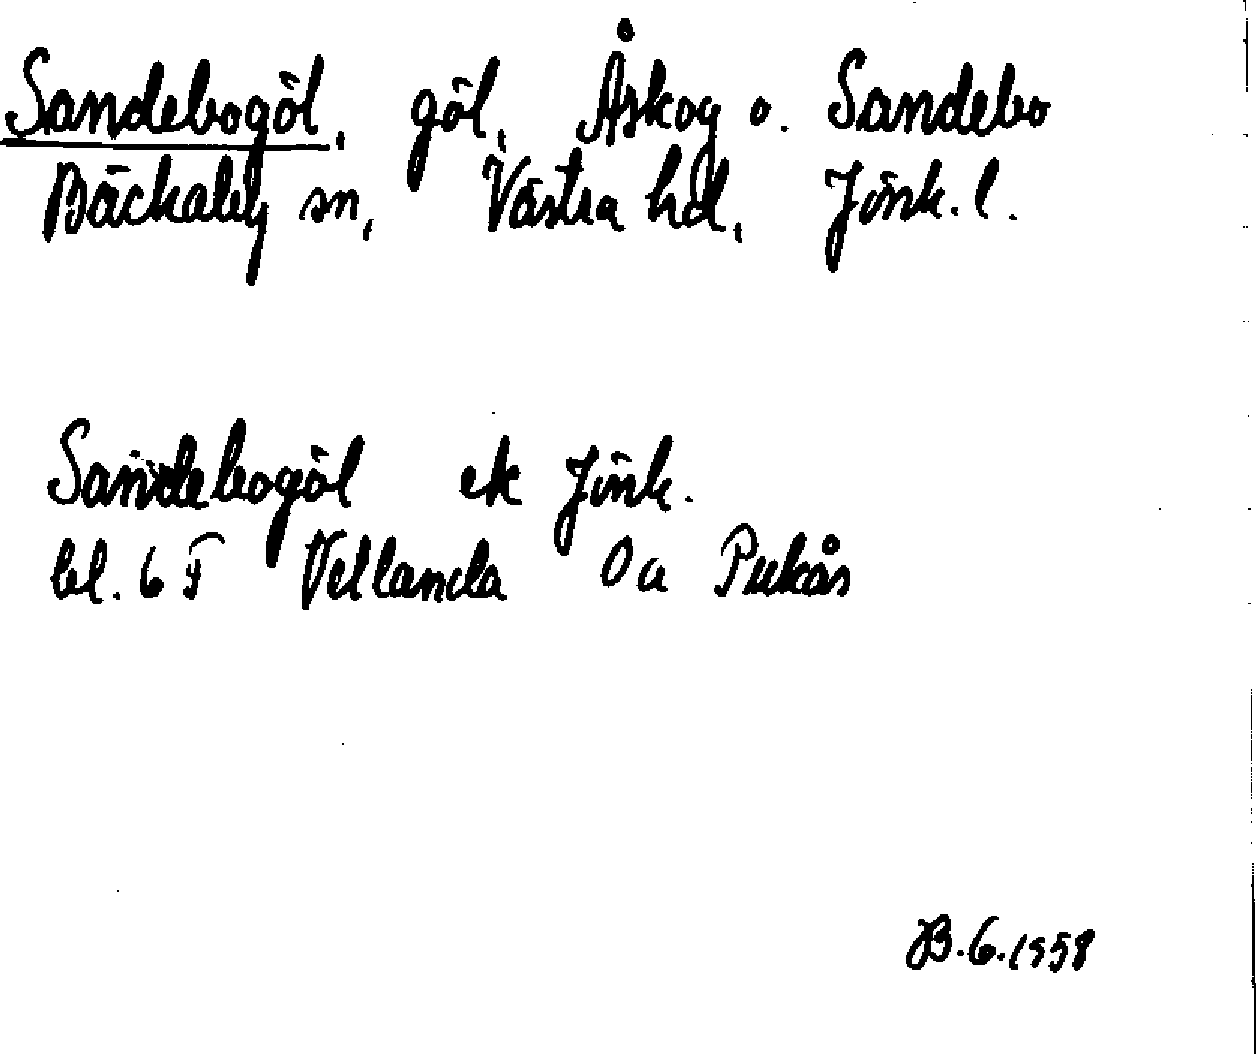 Sandebogöl, göl, Åskog o. Sandebo
Bäckaby sn, Västra hd, Jönk. l.
Sandebogöl ek Jönk.
bl. 6 F Vetlanda 0a Pukås
B.G. 1958